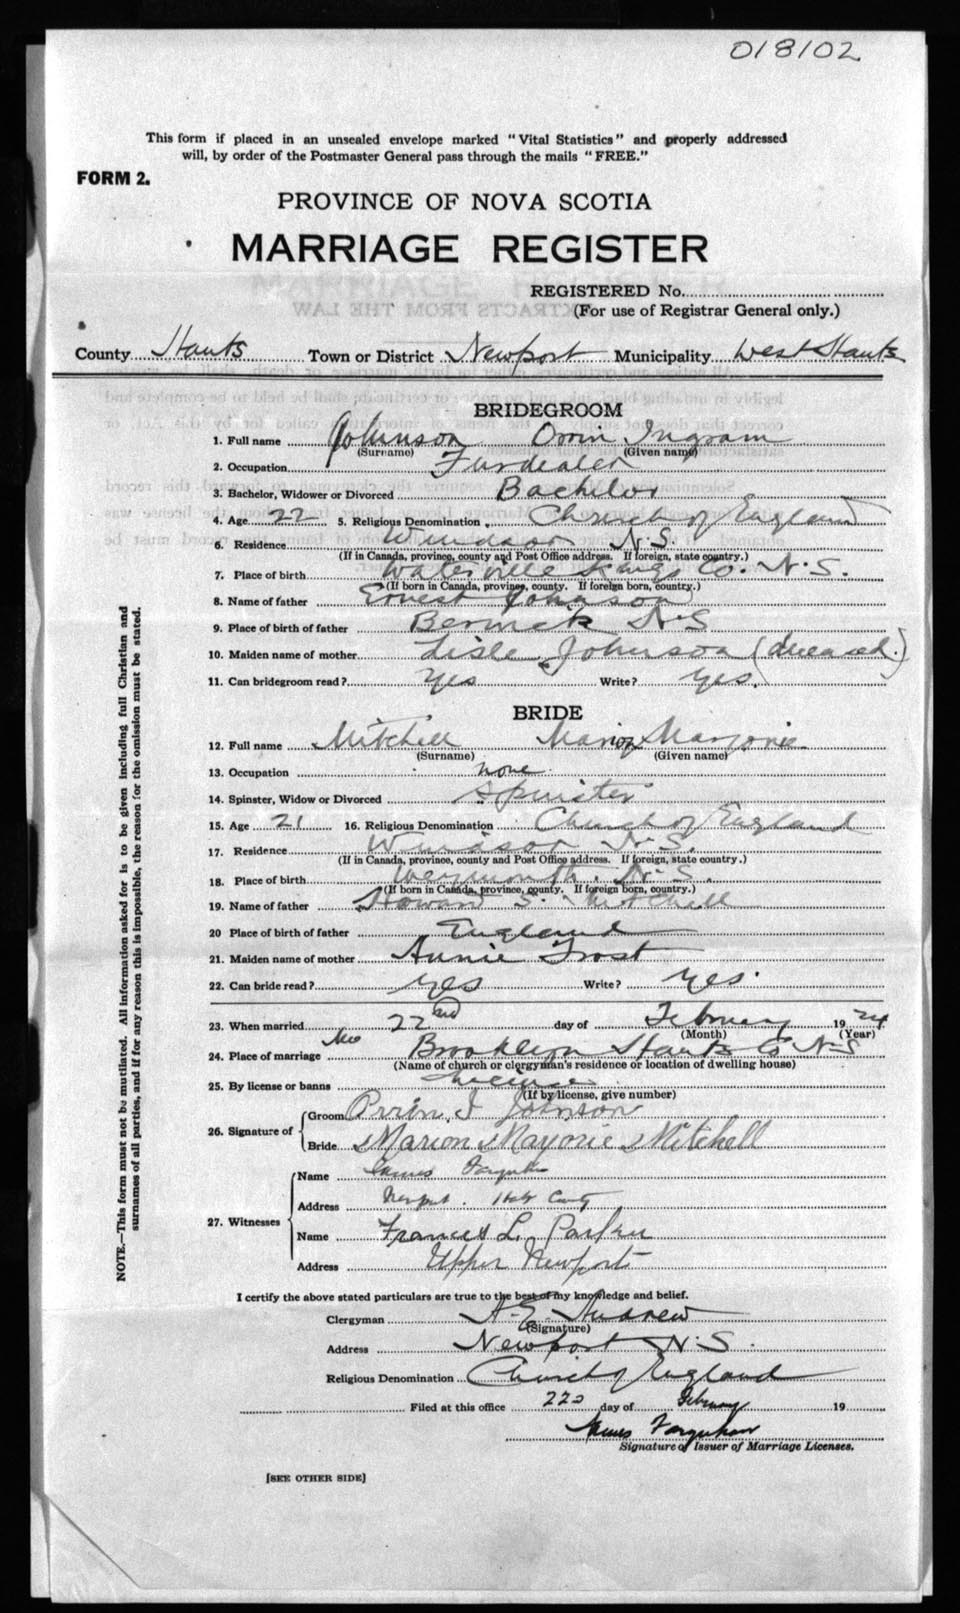 018102
This form if placed in an unsealed envelope marked "Vital Statistics" and properly addressed
will, by order of the Postmaster General pass through the mails "FREE."
FORM 2.
PROVINCE OF NOVA SCOTIA
MARRIAGE REGISTER
REGISTERED No.
(For use of Registrar General only.)
County Hants Town or District Newport Municipality West Hants
BRIDEGROOM
1. Full name Johnson Orrin Ingram
(Surname) (Given name)
2. Occupation Furdealer
3. Bachelor, Widower or Divorced Bachelor
4. Age 22 5. Religious Denomination Church of England
6. Residence Windsor N.S.
(If in Canada, province, county and Post Office address. If foreign, state country.)
7. Place of birth Waterville Kings Co. N.S.
(If born in Canada, province, county. If foreign born, country.)
8. Name of father Ernest Johnson
9. Place of birth of father Berwick N.S
10. Maiden name of mother Lisle Johnson (deceased.)
11. Can bridegroom read? Yes Write? Yes.
BRIDE
12. Full name Mitchell Marion Marjorie
(Surname) (Given name)
13. Occupation none
14. Spinster, Widow or Divorced Spinster
15. Age 21 16. Religious Denomination Church of England
17. Residence Windsor N.S.
(If in Canada, province, county and Post Office address. If foreign, state country.)
18. Place of birth Weymouth. N.S.
(If born in Canada, province, county. If foreign born, country.)
19. Name of father Howard S. Mitchell
20 Place of birth of father England
21. Maiden name of mother Annie Frost
22. Can bride read? Yes Write? Yes.
23. When married 22nd day of February 1924
(Month) (Year)
24. Place of marriage Brooklyn Hants Co N.S
(Name of church or clergyman's residence or location of dwelling house)
25. By license or banns License
(If by license, give number)
26. Signature of Groom Orrin I Johnson
Bride Marion Marjorie Mitchell
27. Witnesses
Name James Farquhar
Address Newport. Hants County
Name Frances L. Parker
Address Upper Newport
I certify the above stated particulars are true to the best of my knowledge and belief.
Clergyman A. E. Andrew
(Signature)
Address Newport N.S.
Religious Denomination Church of England
Filed at this office 22d day of February 19
James Farquhar
Signature of Issuer of Marriage Licenses.
[SEE OTHER SIDE]
NOTE.—This form must not be mutilated. All information asked for is to be given including full Christian and
surnames of all parties, and if for any reason this is impossible, the reason for the omission must be stated.